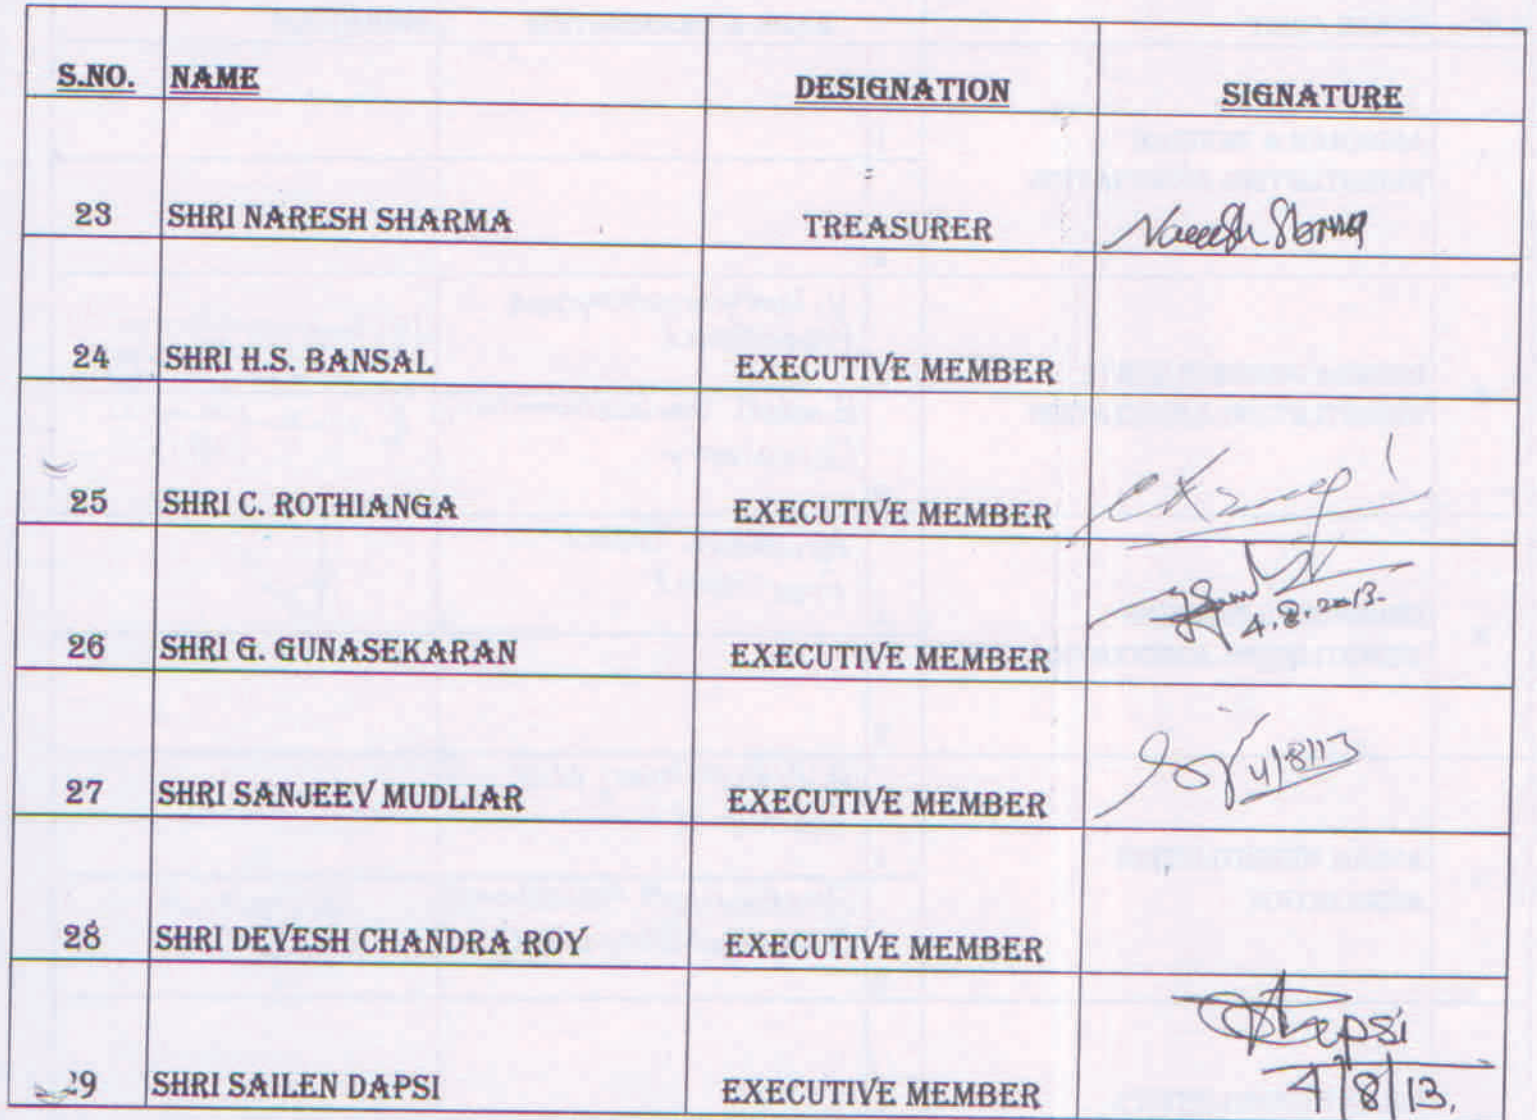 S.NO. NAME DESIGNATION SIGNATURE
23 SHRI NARESH SHARMA TREASURER Naresh Sharma
24 SHRI H.S. BANSAL EXECUTIVE MEMBER
25 SHRI C. ROTHIANGA EXECUTIVE MEMBER
4.8.2013.
26 SHRI G. GUNASEKARAN EXECUTIVE MEMBER
4/8/13
27 SHRI SANJEEV MUDLIAR EXECUTIVE MEMBER
28 SHRI DEVESH CHANDRA ROY EXECUTIVE MEMBER
Dapsi
29 SHRI SAILEN DAPSI EXECUTIVE MEMBER 4/8/13.